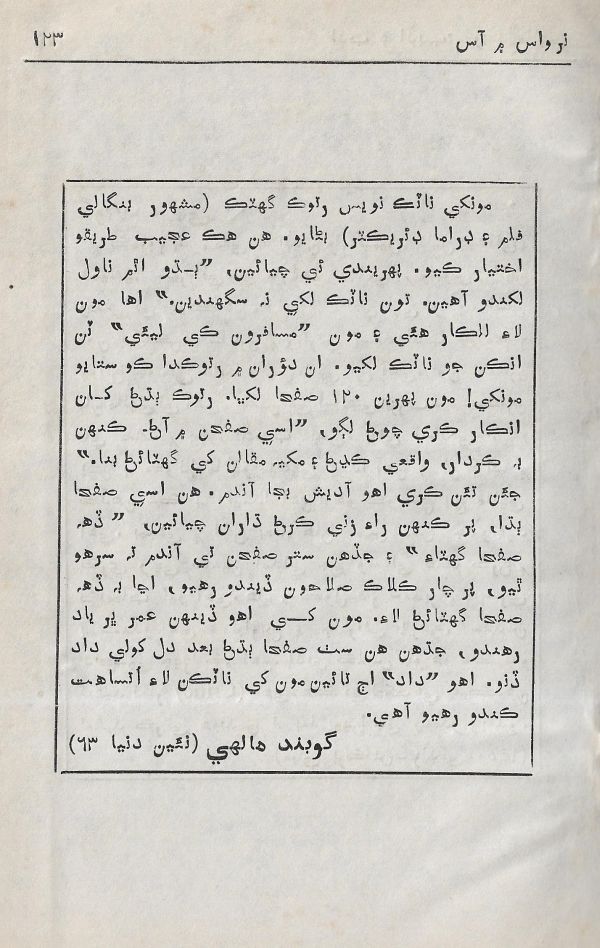 نرواس ۾ آس
١٢٣
مونکي ناٽڪ نويس رتوڪ گھٽڪ (مشهور بنگالي
فلم ۽ ڊراما ڊئريڪٽر) بڻايو. هن هڪ عجيب طريقو
اختيار ڪيو. پهريندي ئي چيائين، ”ٻـڌو اٿم ناول
لکندو آهين. تون ناٽڪ لکي نہ سگهندين.“ اها مون
لاءِ للڪار هئي ۽ مون ”مسافرون کي ليئي“ ٽن
انڪن جو ناٽڪ لکيو. ان دؤران ۾ رتوڪدا ڪو ستايو
مونکي! مون پهرين ١٢٠ صفحا لکيا. رتوڪ ٻڌڻ کـان
انڪار ڪري چوڻ لڳو، ”اسي صفحن ۾ آڻ. ڪنهن
بہ ڪردار، واقعي ڪڍڻ ۽ مکيہ مقالن کي گھٽائڻ بنا.“
جيئن تيئن ڪري اهو آديش بجا آندم. هن اسي صفحا
ٻڌا، پر ڪنهن راءِ زني ڪرڻ ڌاران چيائين، ” ڏهہ
صفحا گھٽاءِ “ ۽ جڏهن ستر صفحن تي آندم تہ سرهو
ٿيو، پر چار ڪلاڪ صلاحون ڏيندو رهيو، اڃا بہ ڏهہ
صفحا گھٽائڻ لاءِ. مون کـــي اهو ڏينهن عمر ڀر ياد
رهندو، جڏهن هن سٺ صفحا ٻڌڻ بعد دل کولي داد
ڏنو. اهو ”داد“ اڄ تائين مون کي ناٽڪن لاءِ اُتساهت
ڪندو رهيو آهي.
گوبند مالهي (نئين دنيا ٦٣)